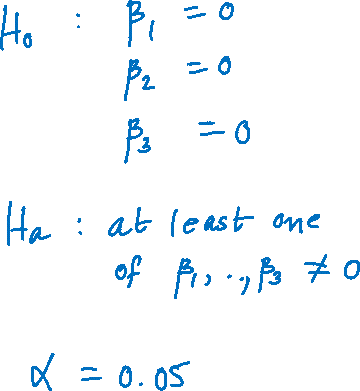 H₀ : β₁ = 0
β₂ = 0
β₃ = 0
Ha : at least one
of β₁, .., β₃ ≠ 0
α = 0.05